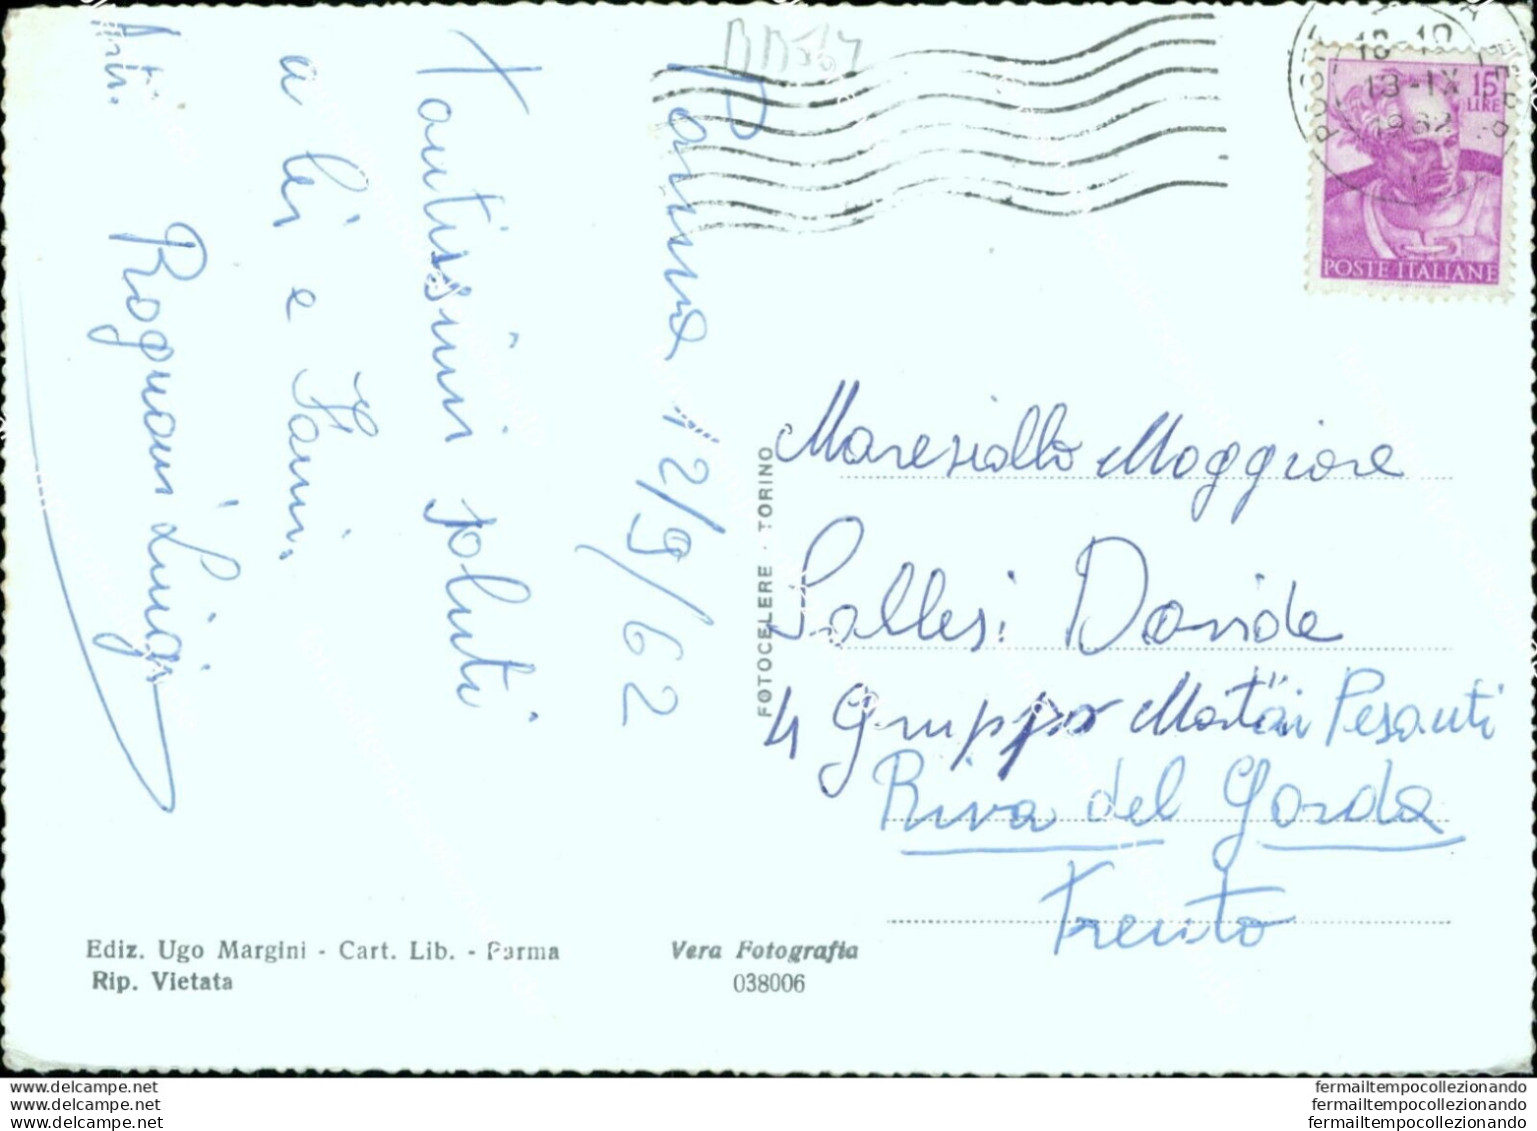 BB564
Parma 12/9/62
Tantissimi saluti
a lei e Fam.
Rognoni Luigi
18-19
13-IX
1962
15
LIRE
POSTE ITALIANE
FOTOCELERE - TORINO
Maresiallo Maggiore
Sallesi Davide
4 Gruppo Mortai Pesanti
Riva del Garda
Trento
Ediz. Ugo Margini - Cart. Lib. - Parma
Rip. Vietata
Vera Fotografia
038006
www.delcampe.net
www.delcampe.net
www.delcampe.net
fermailtempocollezionando
fermailtempocollezionando
fermailtempocollezionando